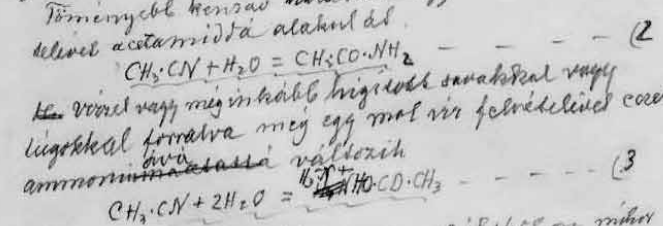 Töményebb kénsav
telével acetamiddá alakul át.
CH₃·CN + H₂O = CH₃CO·NH₂ - - - - (2
vízzel vagy méginkább higított savakkal vagy
lúgokkal forralva még egy mol víz felvételével
ammoniummá változik
CH₃·CN + 2H₂O = HO·CO·CH₃ - - - - (3